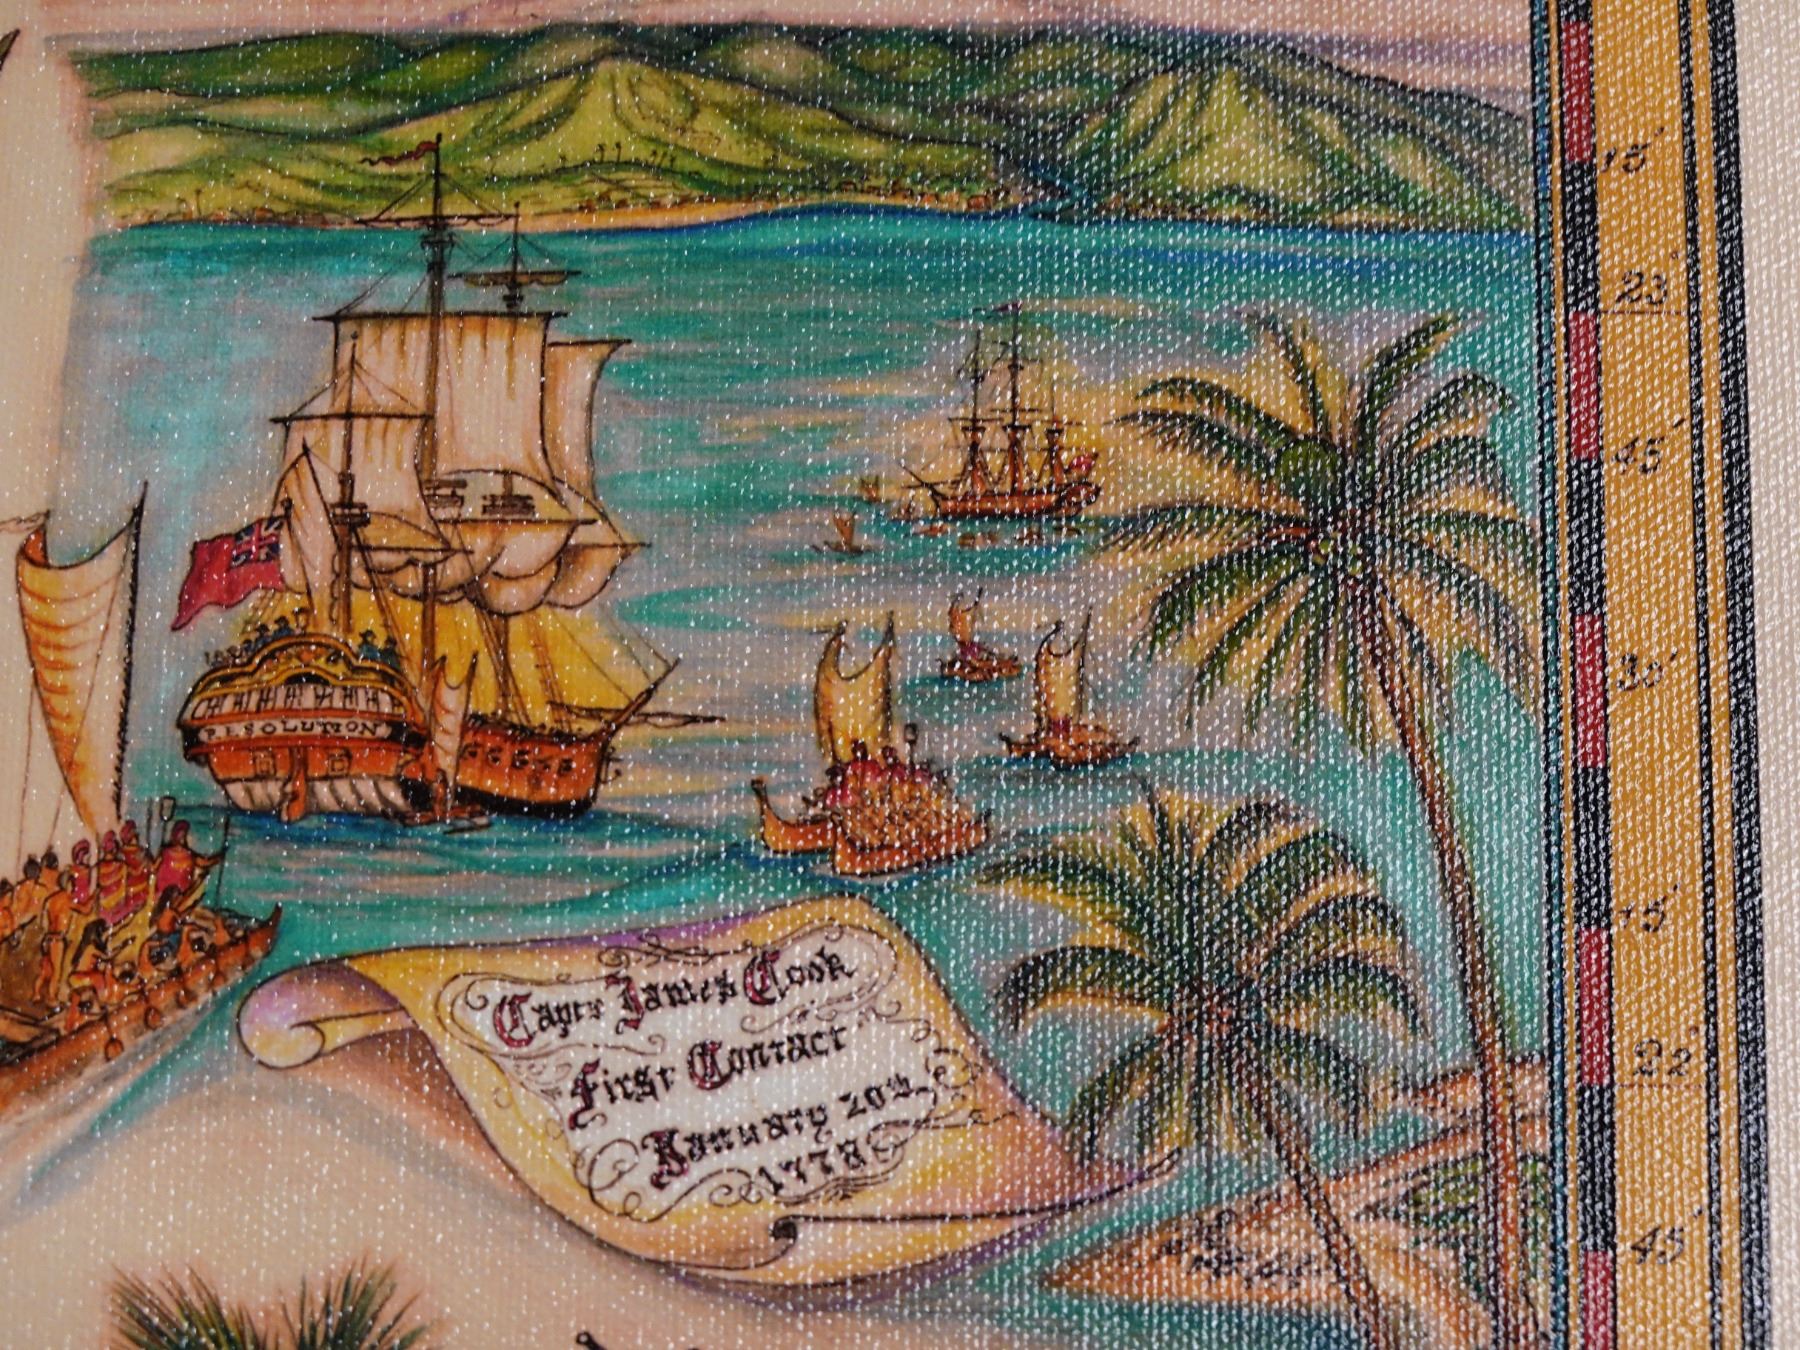 RESOLUTION
Captn James Cook
First Contact
January 20th
1778
15'
23°
45'
30'
15'
22°
45'